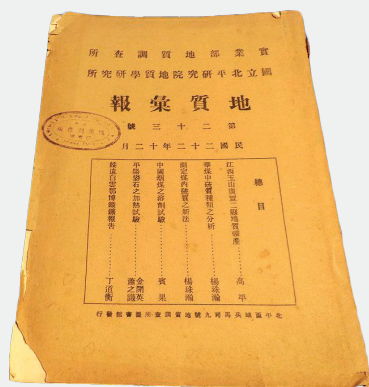 實業部地質調查所
國立北平研究院地質學研究所
地質彙報
第二十三號
民國二十二年十二月
總目
江西玉山廣豐二縣地質礦產……高平
華煤中硫質種類之分析……楊珠瀚
測定煤內硫質之新法……楊珠瀚
中國烟煤之溶劑試驗……賓果
平陽礬石之加熱試驗……金開英 蕭之謙
綏遠白雲鄂博鐵礦報告……丁道衡
北平西城兵馬司九號地質調查所圖書館發行